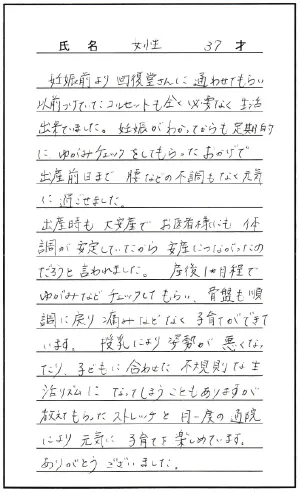 氏名 女性 37才
妊娠前より回復堂さんに通わせてもらい
以前つけていたコルセットも全く必要なく生活
出来ていました。妊娠がわかってからも定期的
にゆがみチェックをしてもらったおかげで
出産前日まで腰などの不調もなく元気
に過ごせました。
出産時も大安産でお医者様にも体
調が安定していたから安産につながったの
だろうと言われました。産後1ヶ月程で
ゆがみなどチェックしてもらい、骨盤も順
調に戻り痛みなどなく子育てができて
います。授乳により姿勢が悪くなっ
たり、子どもに合わせた不規則な生
活リズムになってしまうこともありますが
教えてもらったストレッチと月一度の通院
により元気に子育てを楽しめています。
ありがとうございました。